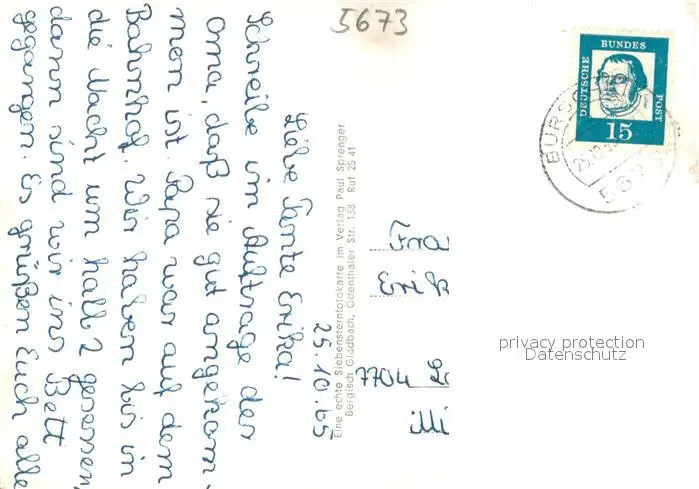 5673
25.10.65
Liebe Tante Erika!
Schreibe im Auftrage der
Oma, daß sie gut angekom-
men ist. Papa war auf dem
Bahnhof. Wir haben bis in
die Nacht um halb 2 gesessen,
dann sind wir ins Bett
gegangen. Es grüßen Euch alle
Eine echte Siebensternfotokarte im Verlag Paul Sprenger
Bergisch Gladbach, Odenthaler Str. 138 Ruf 25 41
DEUTSCHE
BUNDES
POST
15
BURSC
567
Frau
Erik
7704
privacy protection
Datenschutz